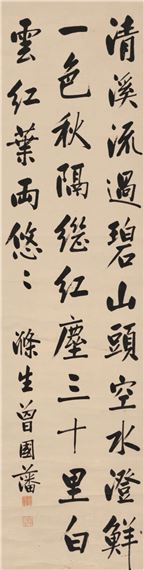 清溪流過碧山頭空水澄鮮
一色秋隔繼紅塵三十里白
雲紅葉兩悠〻滌生曾國藩